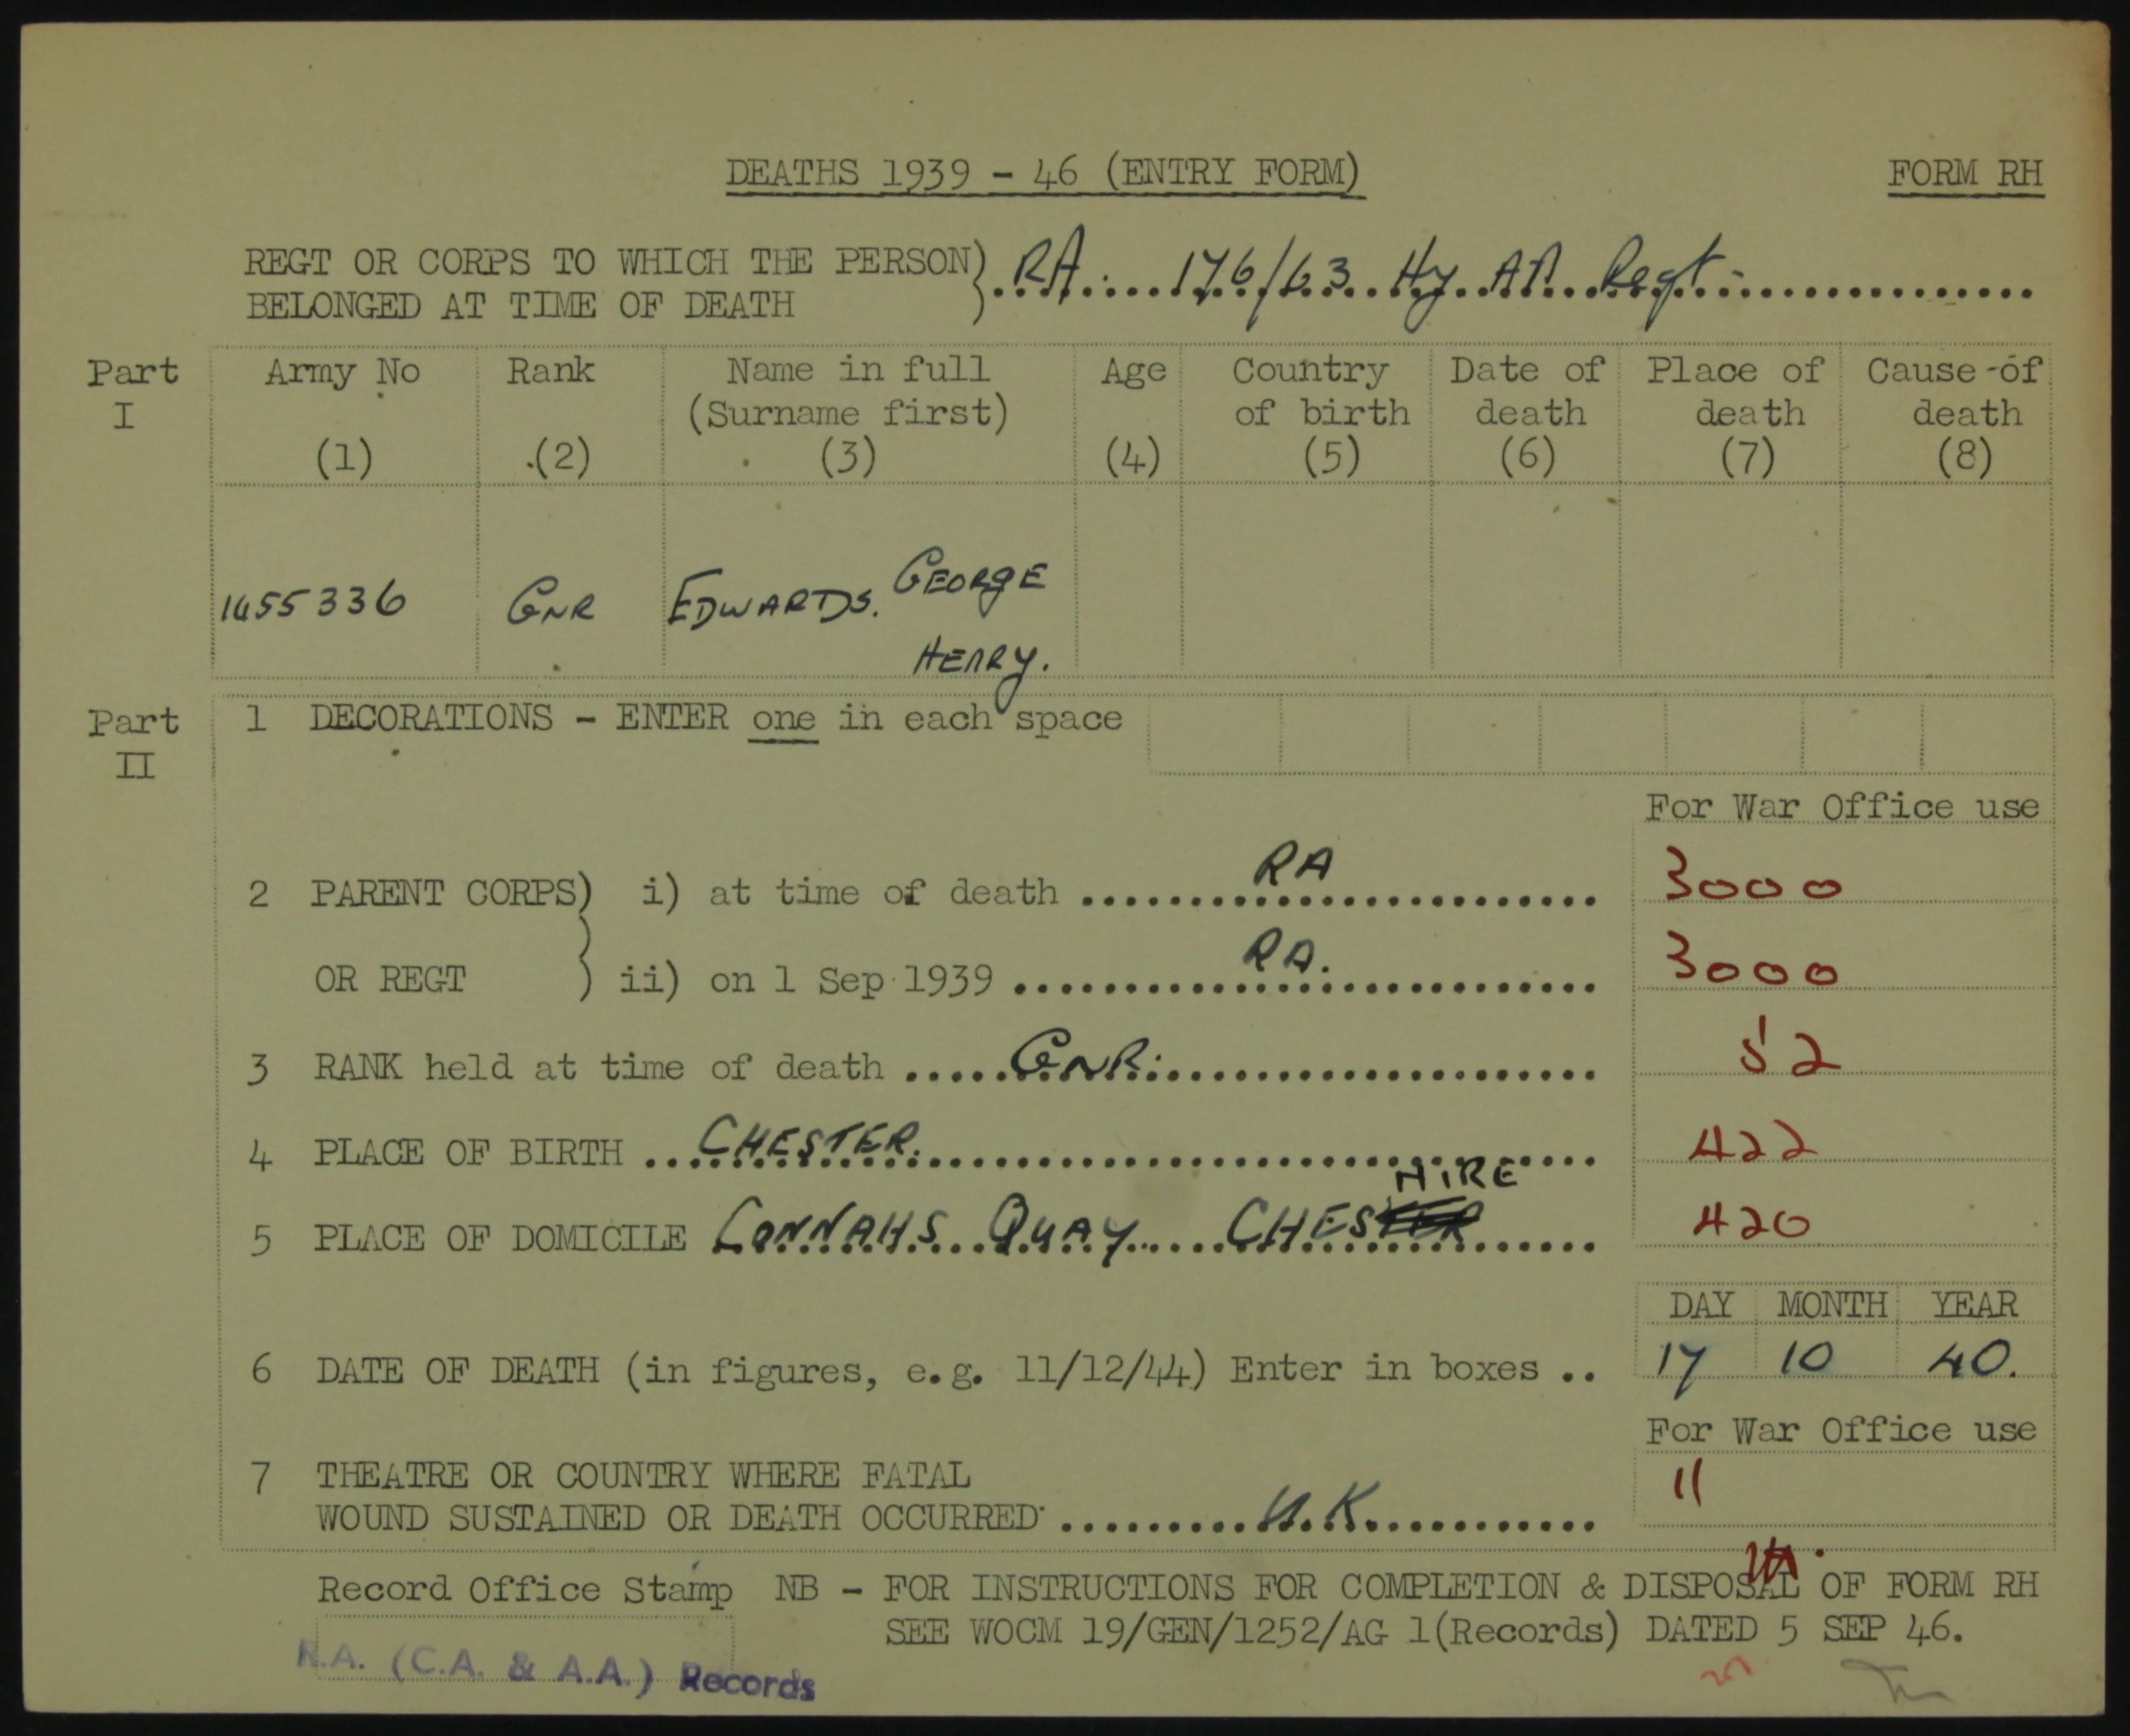 DEATHS 1939 - 46 (ENTRY FORM)
FORM RH
REGT OR CORPS TO WHICH THE PERSON) RA. 176/63 Hy AA Regt.
BELONGED AT TIME OF DEATH
Part I
Army No (1)
Rank (2)
Name in full (Surname first) (3)
Age (4)
Country of birth (5)
Date of death (6)
Place of death (7)
Cause of death (8)
1455336 GNR EDWARDS. GEORGE
HENRY.
Part II
1 DECORATIONS - ENTER one in each space
For War Office use
2 PARENT CORPS) i) at time of death RA 3000
OR REGT ) ii) on 1 Sep 1939 RA. 3000
3 RANK held at time of death GNR. 52
4 PLACE OF BIRTH CHESTER. 422
HIRE
5 PLACE OF DOMICILE CONNAHS QUAY CHESTER 420
DAY MONTH YEAR
6 DATE OF DEATH (in figures, e.g. 11/12/44) Enter in boxes .. 17 10 40.
For War Office use
7 THEATRE OR COUNTRY WHERE FATAL 11
WOUND SUSTAINED OR DEATH OCCURRED U.K.
Record Office Stamp NB - FOR INSTRUCTIONS FOR COMPLETION & DISPOSAL OF FORM RH
SEE WOCM 19/GEN/1252/AG 1(Records) DATED 5 SEP 46.
R.A. (C.A. & A.A.) Records